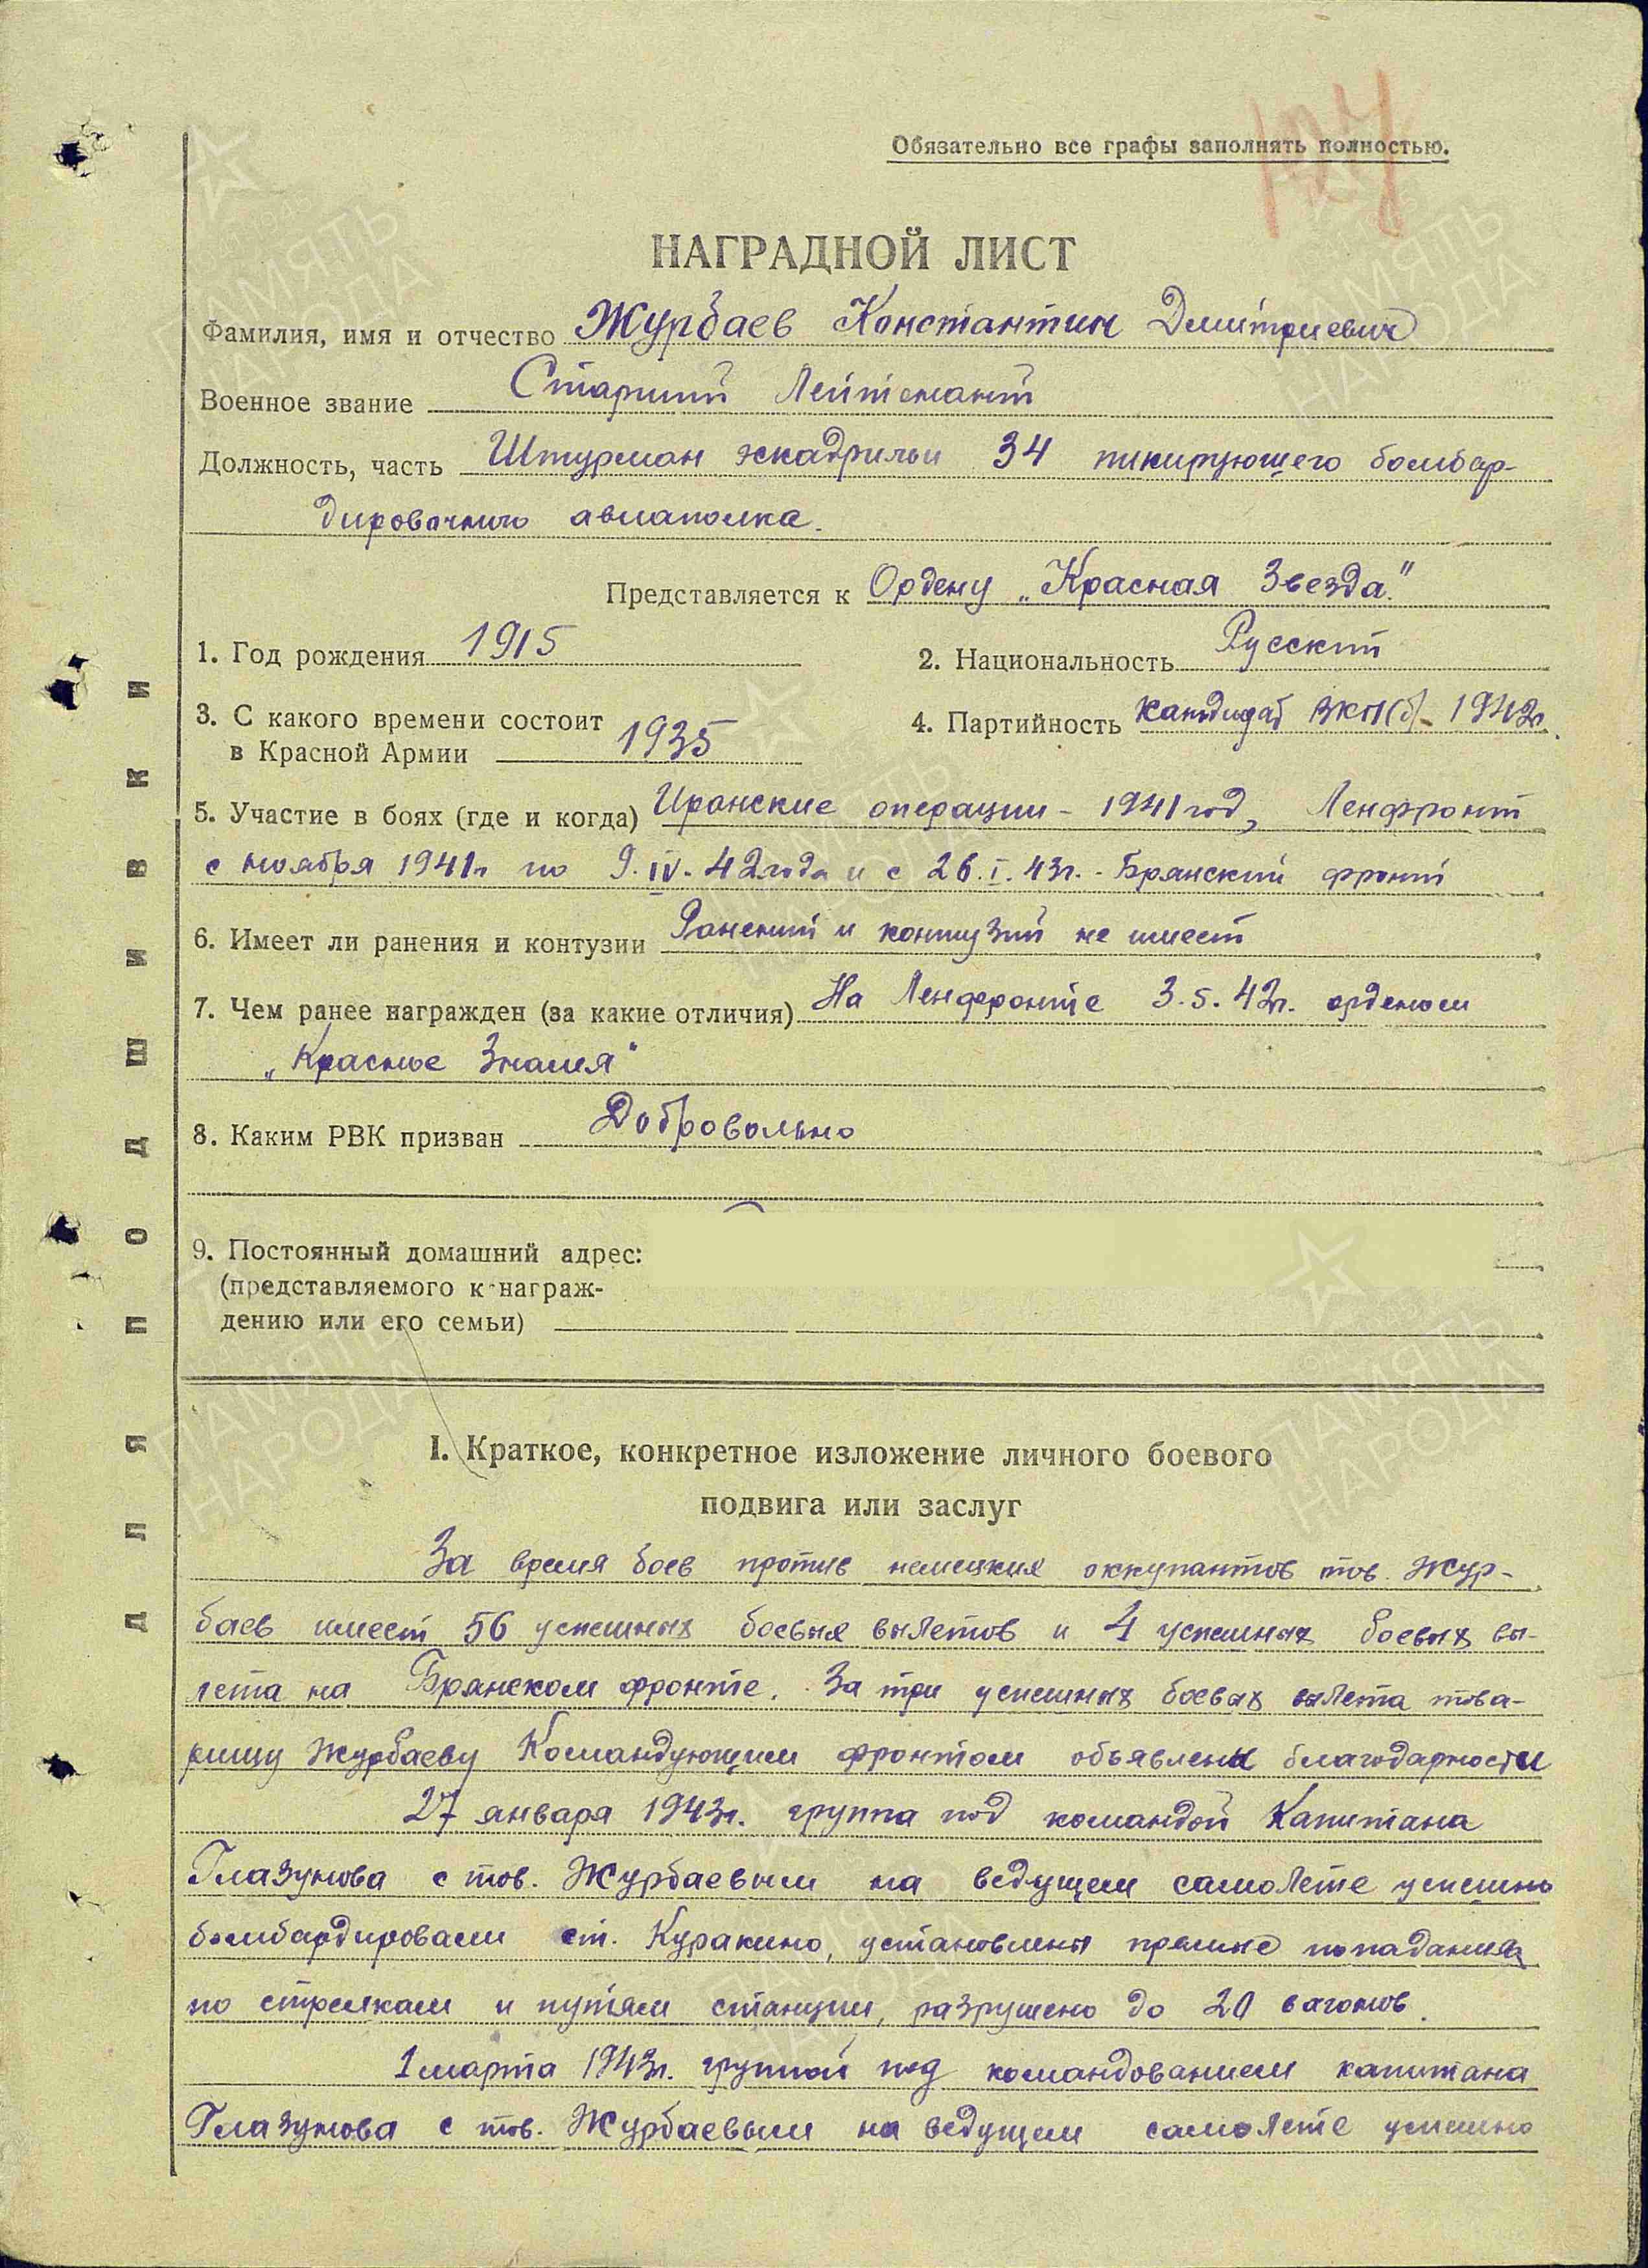 Обязательно все графы заполнять полностью.
НАГРАДНОЙ ЛИСТ
Фамилия, имя и отчество Журбаев Константин Дмитриевич
Военное звание Старший Лейтенант
Должность, часть Штурман эскадрильи 34 пикирующего бомбар-
дировочного авиаполка.
Представляется к Ордену „Красная Звезда."
1. Год рождения 1915
2. Национальность Русский
3. С какого времени состоит
в Красной Армии 1935
4. Партийность кандидат ВКП(б) - 1942г.
5. Участие в боях (где и когда) Иранские операции - 1941 год, Ленфронт
с ноября 1941г по 9.IV.42 года и с 26.I.43г. - Брянский фронт
6. Имеет ли ранения и контузии Ранений и контузий не имеет
7. Чем ранее награжден (за какие отличия) На Ленфронте 3.5.42г. орденом
„Красное Знамя"
8. Каким РВК призван Добровольно
9. Постоянный домашний адрес:
(представляемого к награж-
дению или его семьи)
I. Краткое, конкретное изложение личного боевого
подвига или заслуг
За время боев против немецких оккупантов тов. Жур-
баев имеет 56 успешных боевых вылетов и 4 успешных боевых вы-
лета на Брянском фронте. За три успешных боевых вылета това-
рищу Журбаеву Командующим фронтом объявлены благодарности
27 января 1943г. группа под командой Капитана
Глазунова с тов. Журбаевым на ведущем самолете успешно
бомбардировали ст. Куракино, установлены прямые попадания
по стрелкам и путям станции, разрушено до 20 вагонов.
1 марта 1943г. группой под командованием капитана
Глазунова с тов. Журбаевым на ведущем самолете успешно
ДЛЯ ПОДШИВКИ
ПАМЯТЬ
НАРОДА